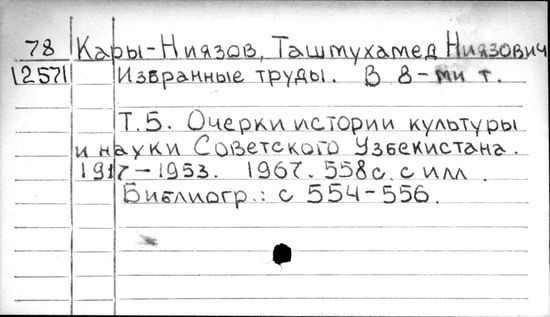 78 Кары-Ниязов, Ташмухамед Ниязович
12571 Избранные труды. В 8-ми т.
Т.5. Очерки истории культуры
и науки Советского Узбекистана.
1917-1953. 1967. 558с. с илл.
Библиогр.: с 554-556.